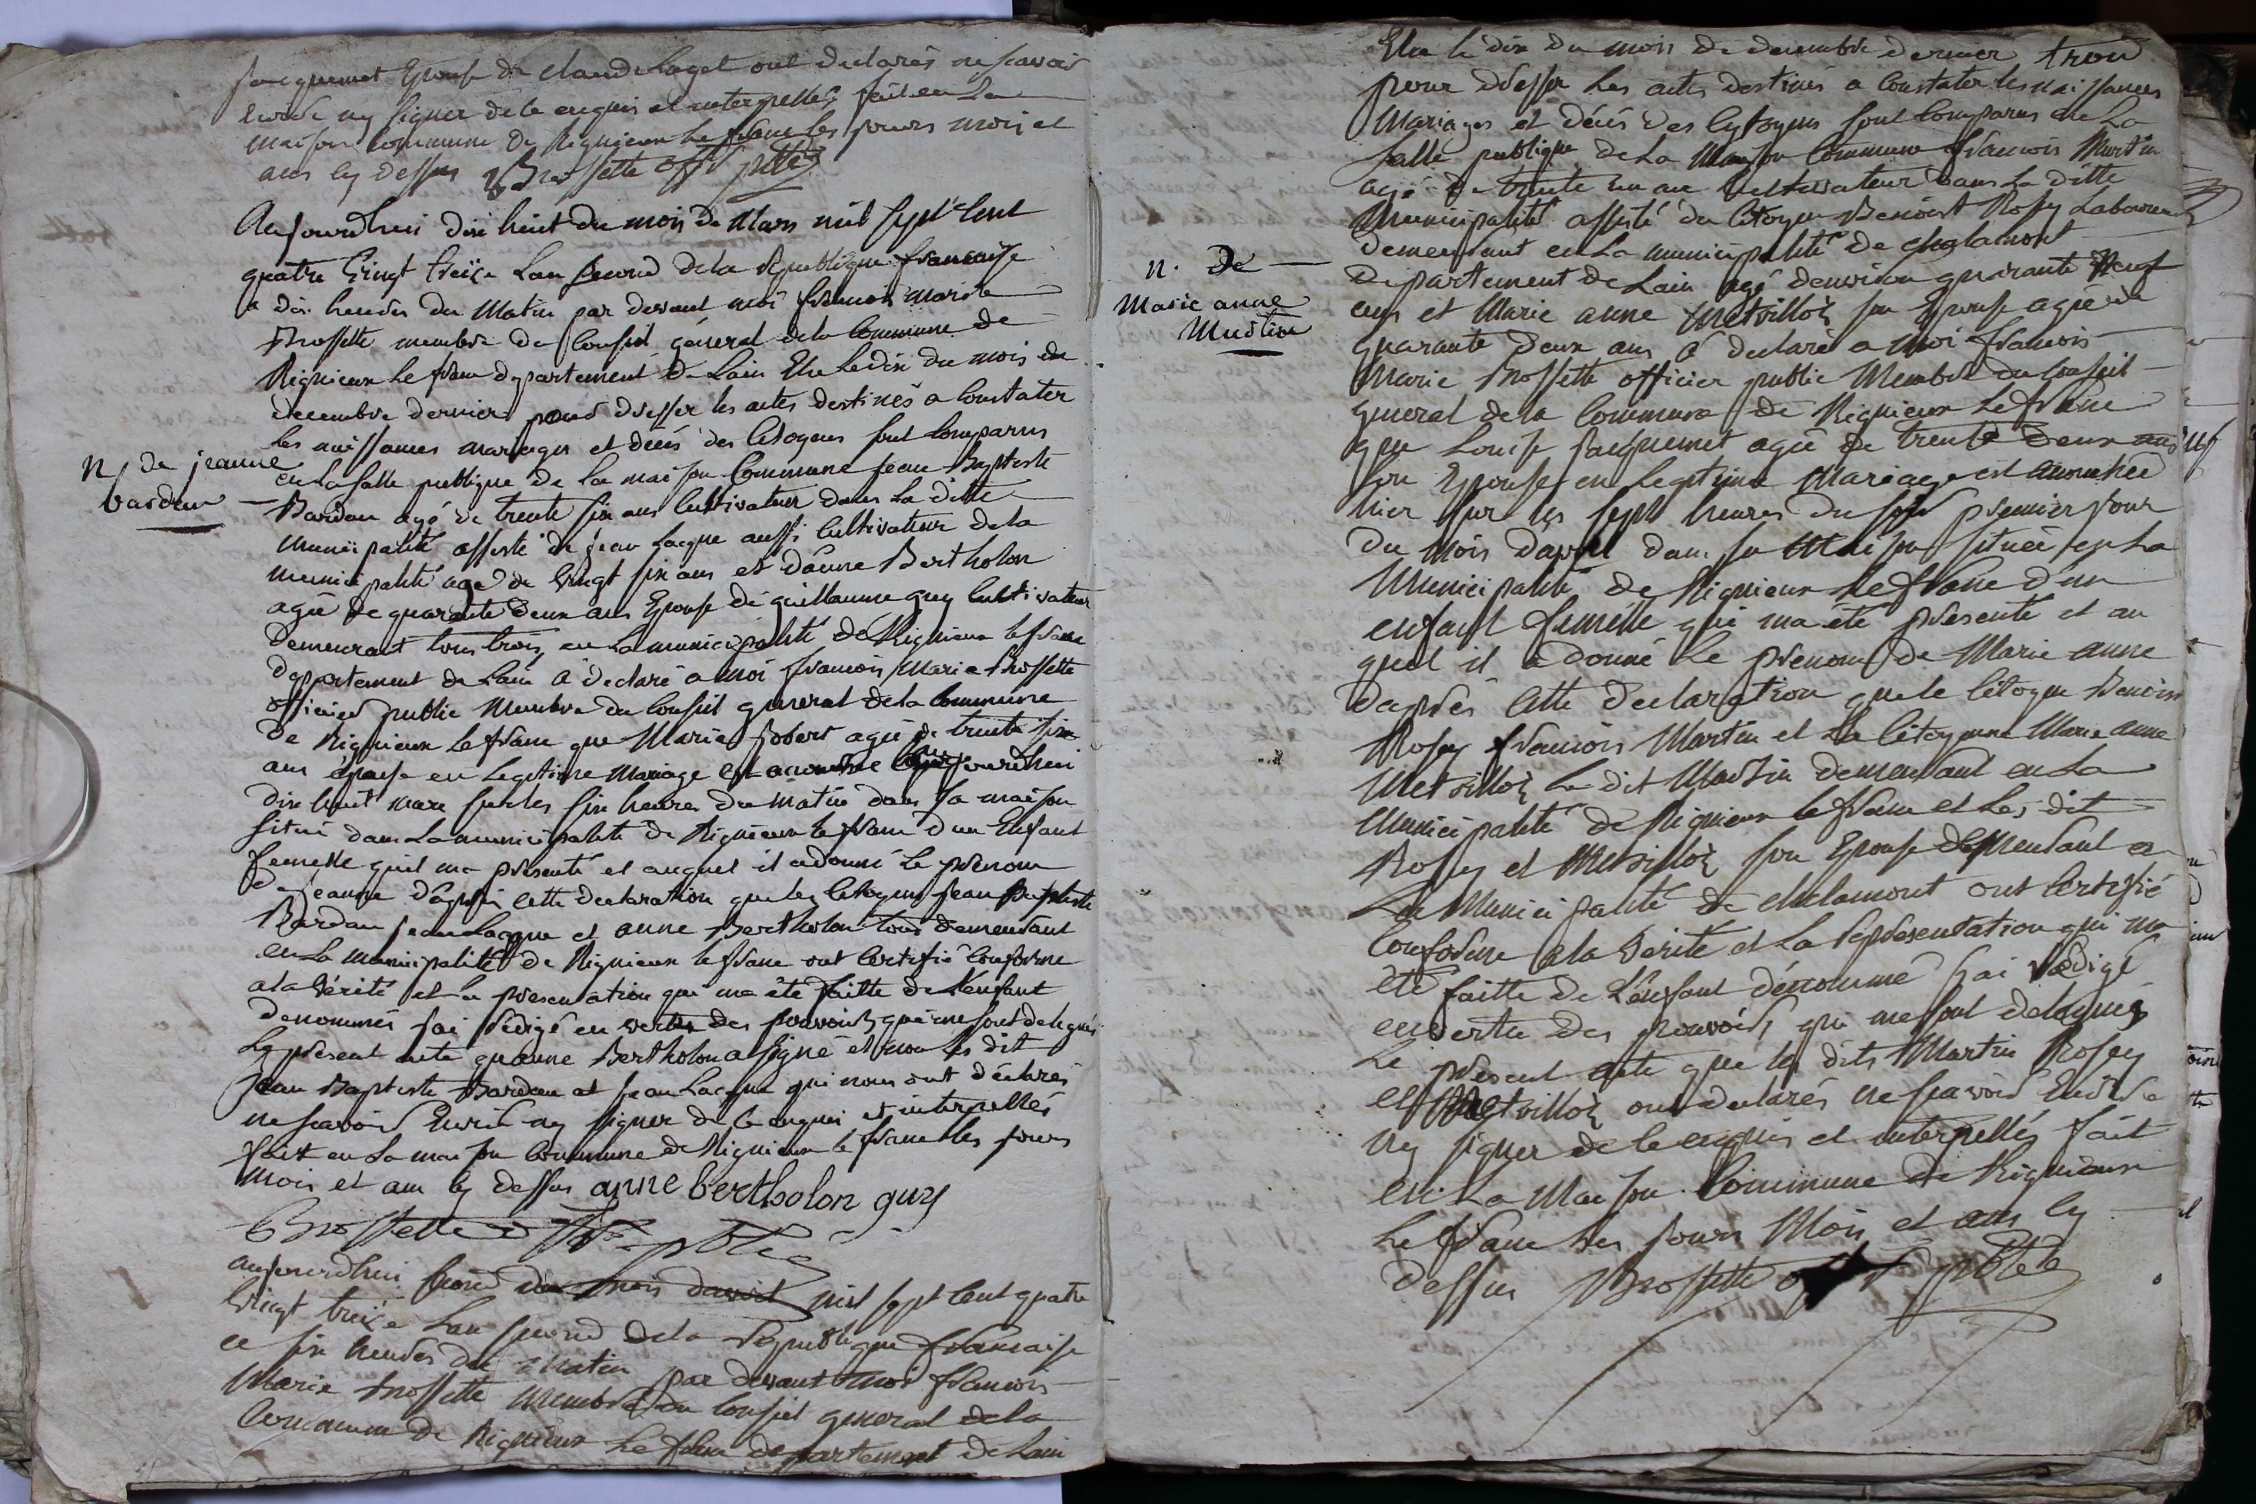 Jacquemet Epouse de claude laget ont declarés ne scavoir
Ecrire ny signer de ce enquis et interpellés fait en la
maison commune de Rignieux le franc les jours mois et
ans cy dessus Brossette off. public
Aujourdhui dix huit du mois de Mars mil sept cent
quatre vingt treize Lan second de la Republique francaise
a dix heures du Matin par devant moi francois marie
Brossette membre du Conseil géneral de la Commune de
Rignieux le franc departement de Lain Elu le dix du mois de
decembre dernier pour dresser les actes destinés a Constater
les naissances mariages et décés des Citoyens sont Comparus
N. de jeanne
bardau
en la salle publique de la maison Commune jean Baptiste
Bardau agé de trente six ans Cultivateur dans la ditte
municipalité assisté de jean Lacque aussi Cultivateur de la
municipalité agé de vingt six ans et d'anne Bertholon
agée de quarante deux ans Epouse de guillaume guy Cultivateur
demeurant tous trois en la municipalité de Rignieux le franc
departement de Lain à declaré à moi francois Marie Brossette
officier public Membre du Conseil general de la Commune
de Rignieux le franc que Marie agée de trente six
ans épouse en Legitime Mariage est accouchee aujourdhui
dix huit mars sur les six heures du matin dans sa maison
situé dans la municipalité de Rignieux le franc d'un Enfant
femelle quil ma présenté et auquel il a donné le prénom
de jeanne d'après cette declaration que les Citoyens jean Baptiste
Bardau jean Lacque et anne Bertholon tous demeurant
en la municipalité de Rignieux le franc ont Certifié Conforme
a la Vérité et la presentation qui ma été faitte de l'enfant
denommés jai rédigé en vertu des pouvoirs qui me sont delegués
Le present acte quanne Bertholon a signé et non les dit
jean Baptiste Bardau et jean Lacque qui nous ont déclarés
ne scavoir Ecrire ny signer de ce enquis et interpellés
fait en la maison Commune de Rignieux le franc les jours
mois et an cy dessus anne bertholon guy
Brossette off. public
aujourdhui second du mois davril mil sept cent quatre
vingt treize Lan second de la Republique francaise
a six heures du matin par devant moi francois
Marie Brossette membre du Conseil general de la
Commune de Rignieux le franc departement de Lain
Elu le dix du mois de decembre dernier
pour dresser les actes destinés a Constater les naissances
Mariages et décés des Cytoyens sont Comparus en La
salle publique de la Maison Commune francois Martin
agé de trente un an Cultivateur dans la ditte
Municipalité assisté du Citoyen Benoist Rosey Laboureur
demeurant en la municipalité de chalamont
N. de
Marie anne
Martin
Departement de Lain agé denviron quarante neuf
ans et Marie anne Metrillot son Epouse agée de
quarante deux ans à declaré a moi francois
Marie Brossette officier public Membre du Conseil
general de la Commune de Rignieux le franc
que Louise jacquemet agée de trente deux ans
son Epouse en Legitime Mariage est accouchée
hier sur les sept heures du soir premier jour
du mois davril dans sa Maison située en la
Municipalité de Rignieux le franc d'un
enfant femelle qui ma été présenté et au
quel il a donné le prénom de Marie anne
daprès cette declaration que le Citoyen Benoist
Rosey francois Martin et la Citoyenne Marie anne
Metrillot le dit Martin demeurant en la
Municipalité de Rignieux le franc et les dit
Rosey et Metrillot son Epouse demeurant en
La Municipalité de chalamont ont Certifié
Conforme a la Verité et la representation qui ma
été faitte de L'enfant dénommé jai redigé
en vertu des pouvoirs qui me sont delegués
Le present acte que les dits Martin Rosey
et Metrillot ont declarés ne scavoir Ecrire
ny signer de ce enquis et interpellés fait
en la Maison Commune de Rignieux
le franc les jours Mois et ans cy
dessus Brossette